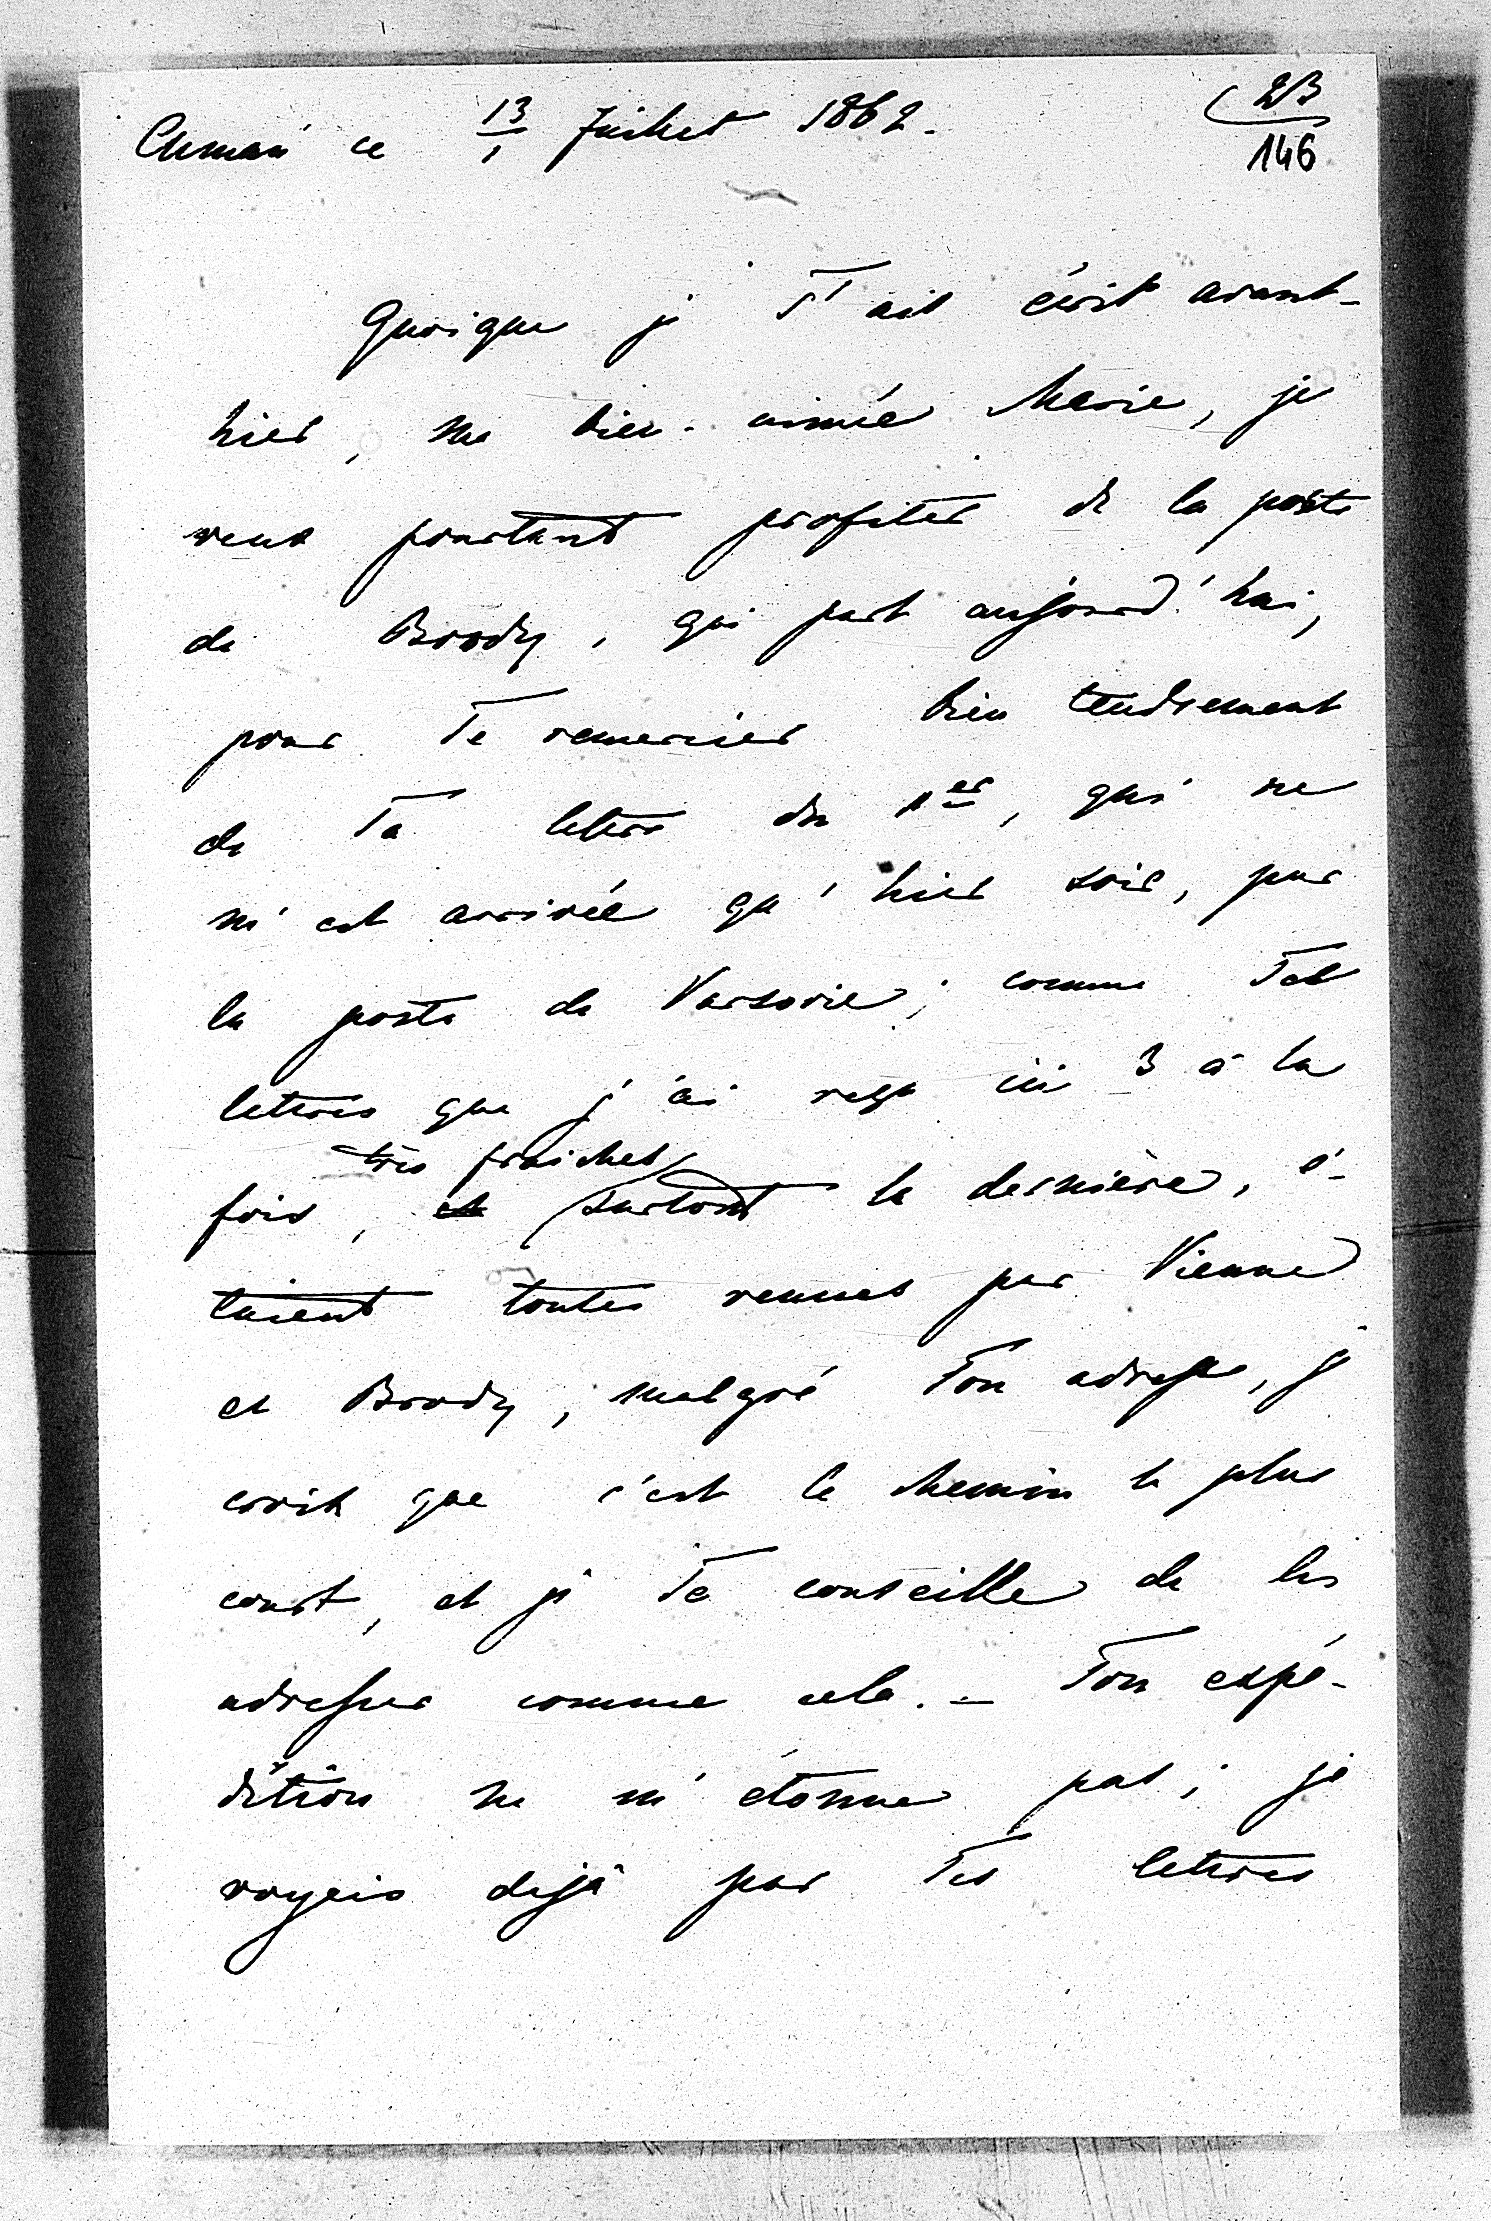 Uman ce 13/1 Juillet 1862.
23/146
Quoique je T'ai écrit avant-
hier, ma bien-aimée Marie, je
veux pourtant profiter de la poste
de Brody, qui part aujourd'hui,
pour Te remercier bien tendrement
de Ta lettre du 1er, qui ne
m'est arrivée qu'hier soir, par
la poste de Varsovie; comme Tes
lettres que j'ai reçu ici 3 à la
très fraiches
fois, et surtout la dernière, é-
taient toutes venues par Vienne
et Brody, malgré Ton adresse, je
crois que c'est le chemin le plus
court, et je Te conseille de les
adresser comme cela. – Ton expé-
dition ne m'étonne pas; je
voyais dejà par Tes lettres